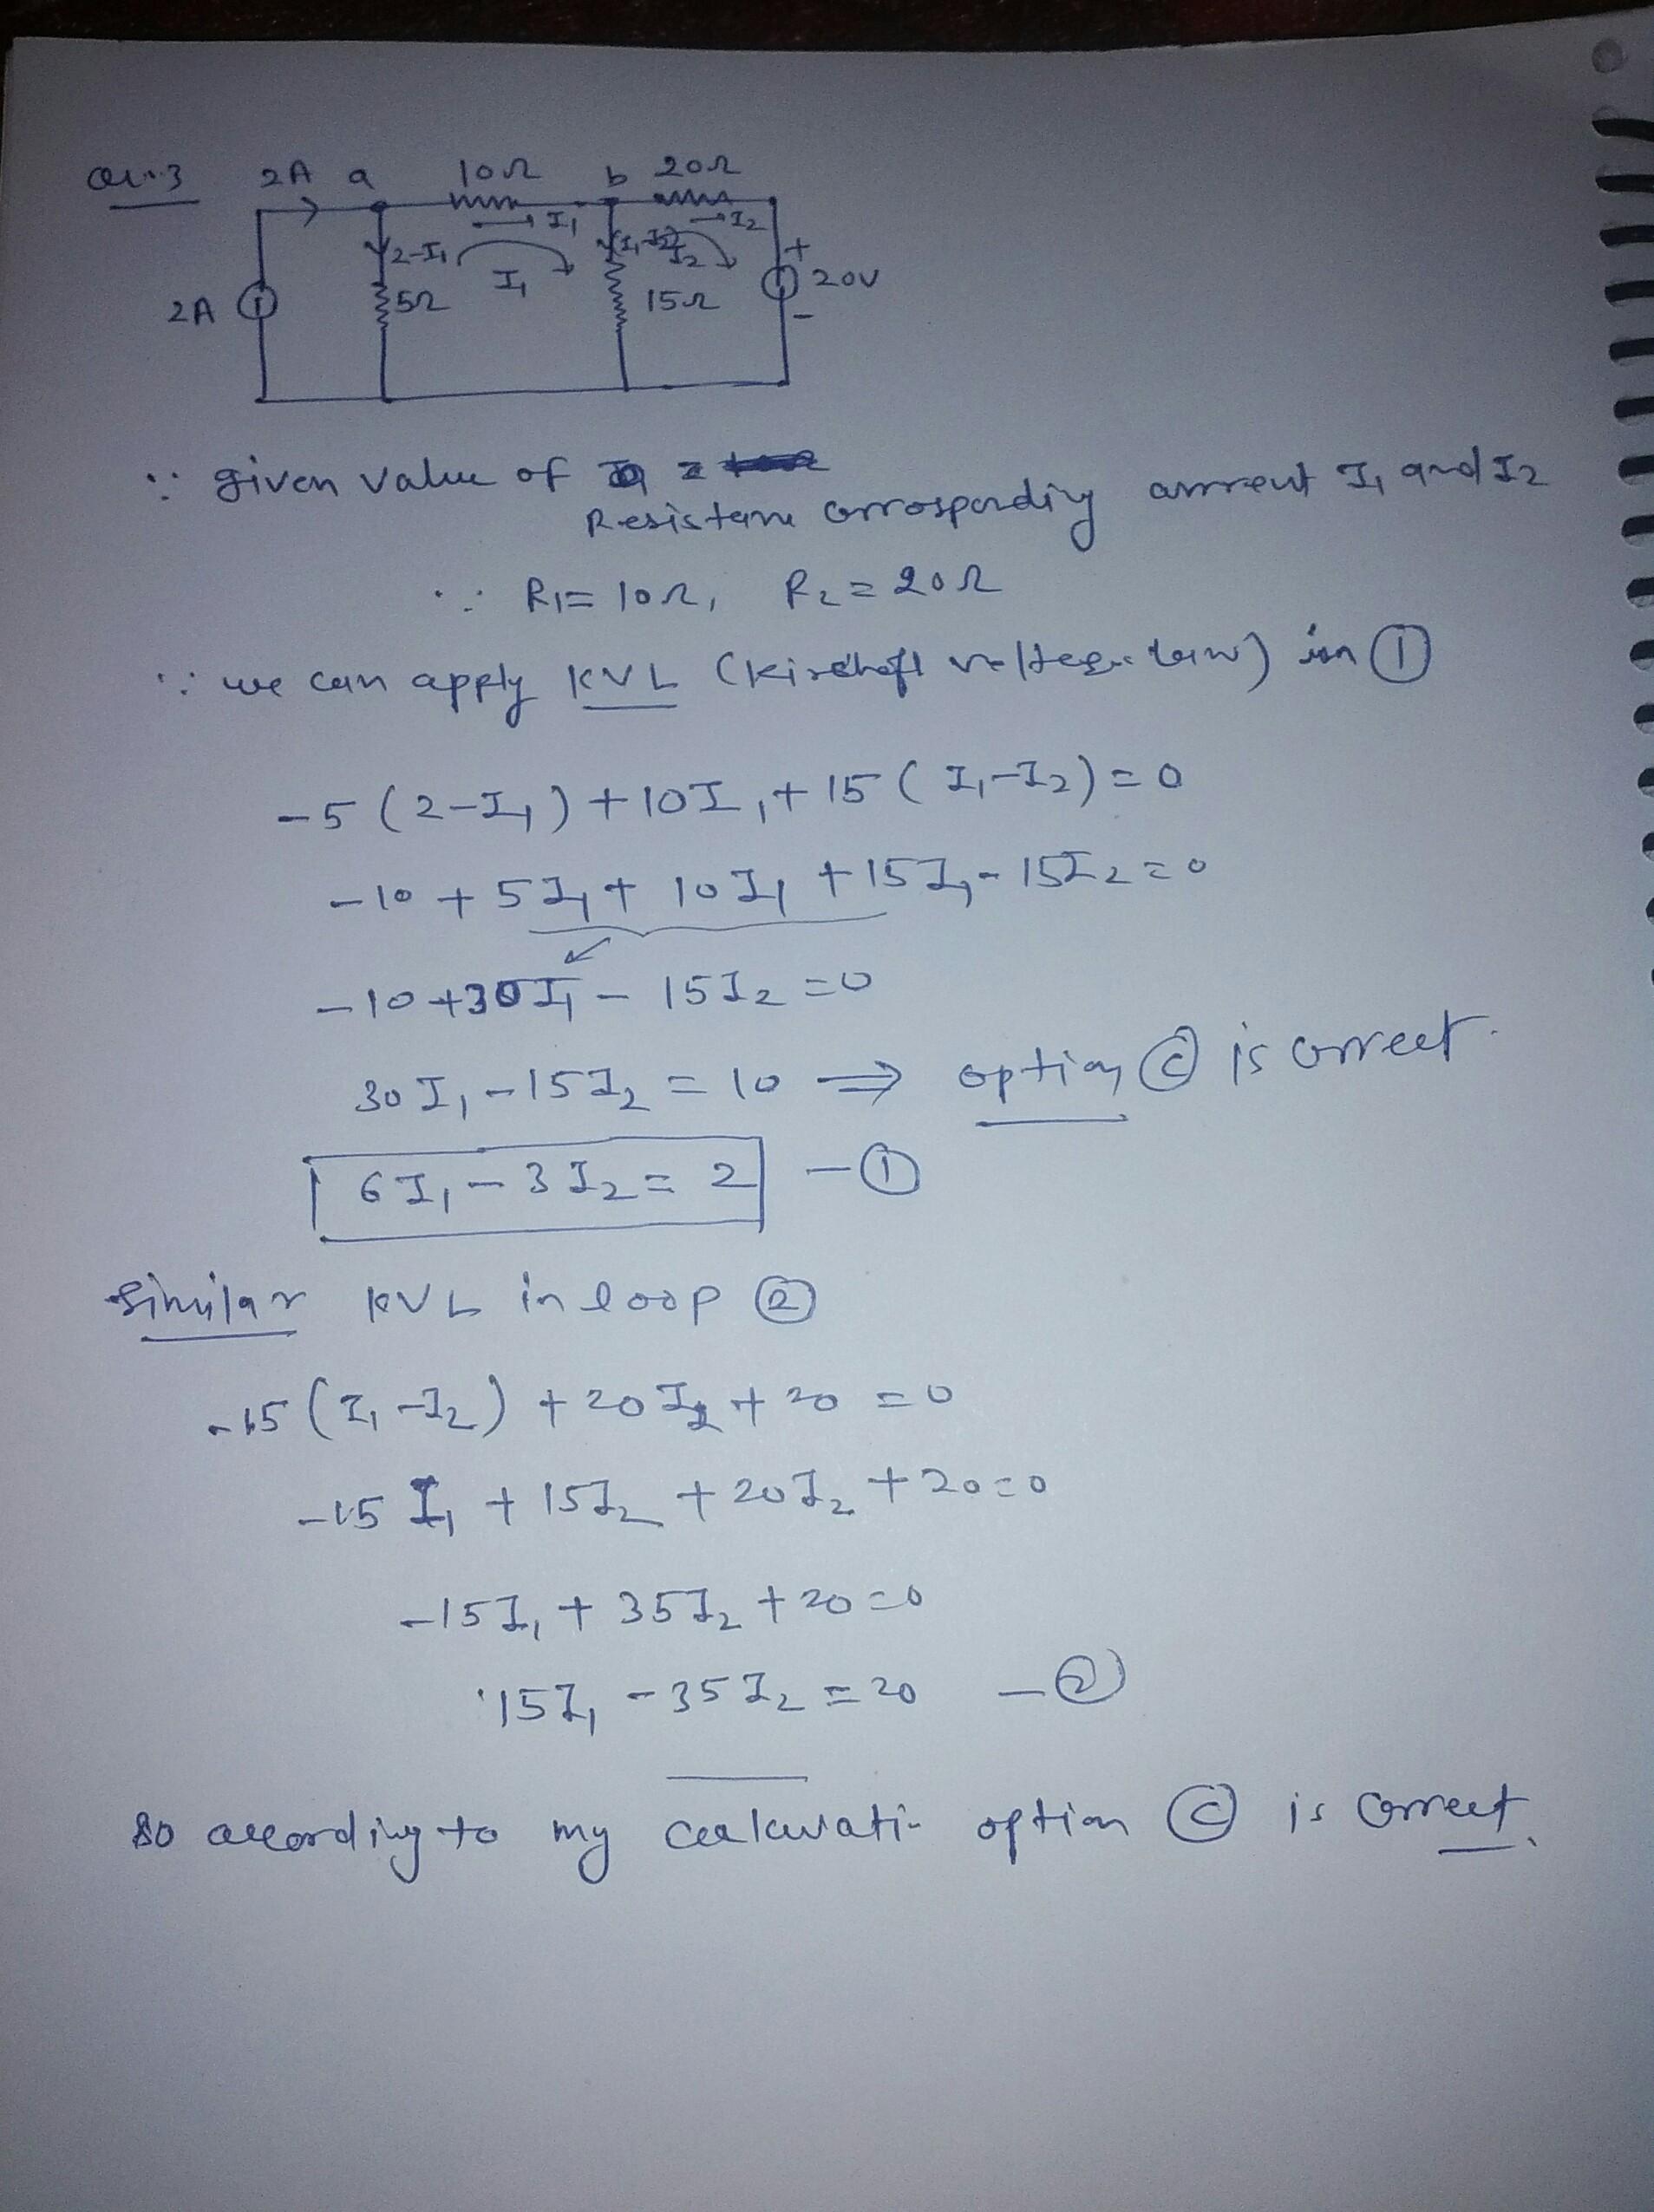 Qu.3 2A a 10Ω b 20Ω
→ I1 → I2
2-I1 (I1-I2) I2 +
2A 5Ω I1 15Ω 20V
-
∵ given value of
Resistane corrosponding current I1 and I2
∵ R1= 10Ω, R2=20Ω
∵ we can apply KVL (kirchoff voltage law) in ①
-5(2-I1)+10I1+15(I1-I2)=0
-10+5I1+10I1+15I1-15I2=0
-10+30I1-15I2=0
30I1-15I2=10 ⇒ option ⓒ is correct.
6I1-3I2=2 -①
Similar KVL in loop ②
-15(I1-I2)+20I2+20=0
-15I1+15I2+20I2+20=0
-15I1+35I2+20=0
15I1-35I2=20 -②
so according to my calculati option ⓒ is correct.